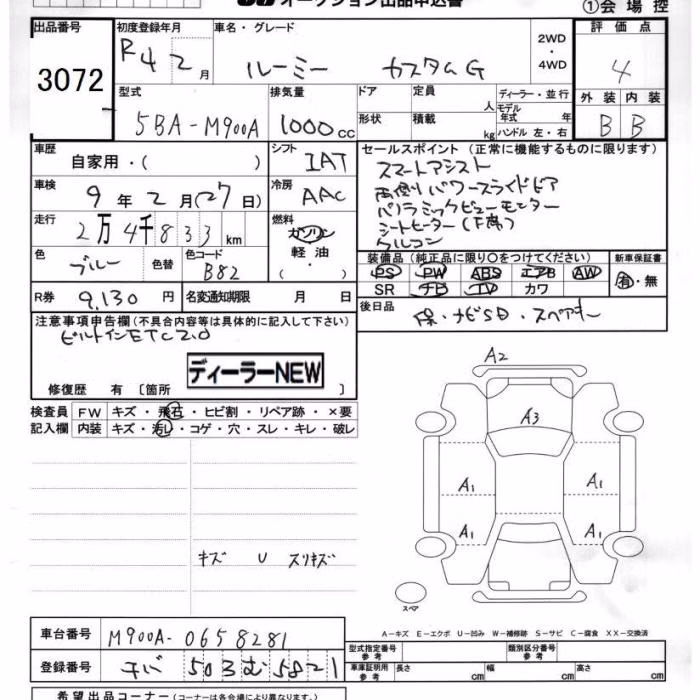 オークション出品申込書
①会場控
出品番号 初度登録年月 車名・グレード 評価点
3072 R4 2月 ルーミー カスタムG 2WD・4WD 4
型式 排気量 ドア 定員 人 ディーラー・並行 外装 内装
5BA-M900A 1000cc 形状 積載 kg モデル年式 年 ハンドル 左・右 B B
車歴 自家用・( ) シフト IAT セールスポイント (正常に機能するものに限ります)
車検 9年2月(27日) 冷房 AAC スマートアシスト
両側パワースライドドア
走行 2万4千833km 燃料 ガソリン・軽油・( ) パノラミックビューモニター
シートヒーター(下席)
クルコン
色 ブルー 色替 色コード B82 装備品 (純正品に限り○をつけてください) 新車保証書
PS PW ABS エアB AW 有・無
R券 9,130円 名変通知期限 月 日 SR ナビ TV カワ
注意事項申告欄 (不具合内容等は具体的に記入して下さい) 後日品 保・ナビSD・スペアキー
ビルトインETC2.0
ディーラーNEW
修復歴 有 〔箇所 〕
検査員 FW キズ・飛石・ヒビ割・リペア跡・×要
記入欄 内装 キズ・汚レ・コゲ・穴・スレ・キレ・破レ
A2
A3
A1 A1
A1 A1
キズ U スリキズ
スペア
A-キズ E-エクボ U-凹み W-補修跡 S-サビ C-腐食 XX-交換済
車台番号 M900A-0658281
登録番号 チバ 503 む 5821
型式指定番号 類別区分番号
車庫証明用参考 長さ cm 幅 cm 高さ cm
希望出品コーナー (コーナーは各会場により異なります。)